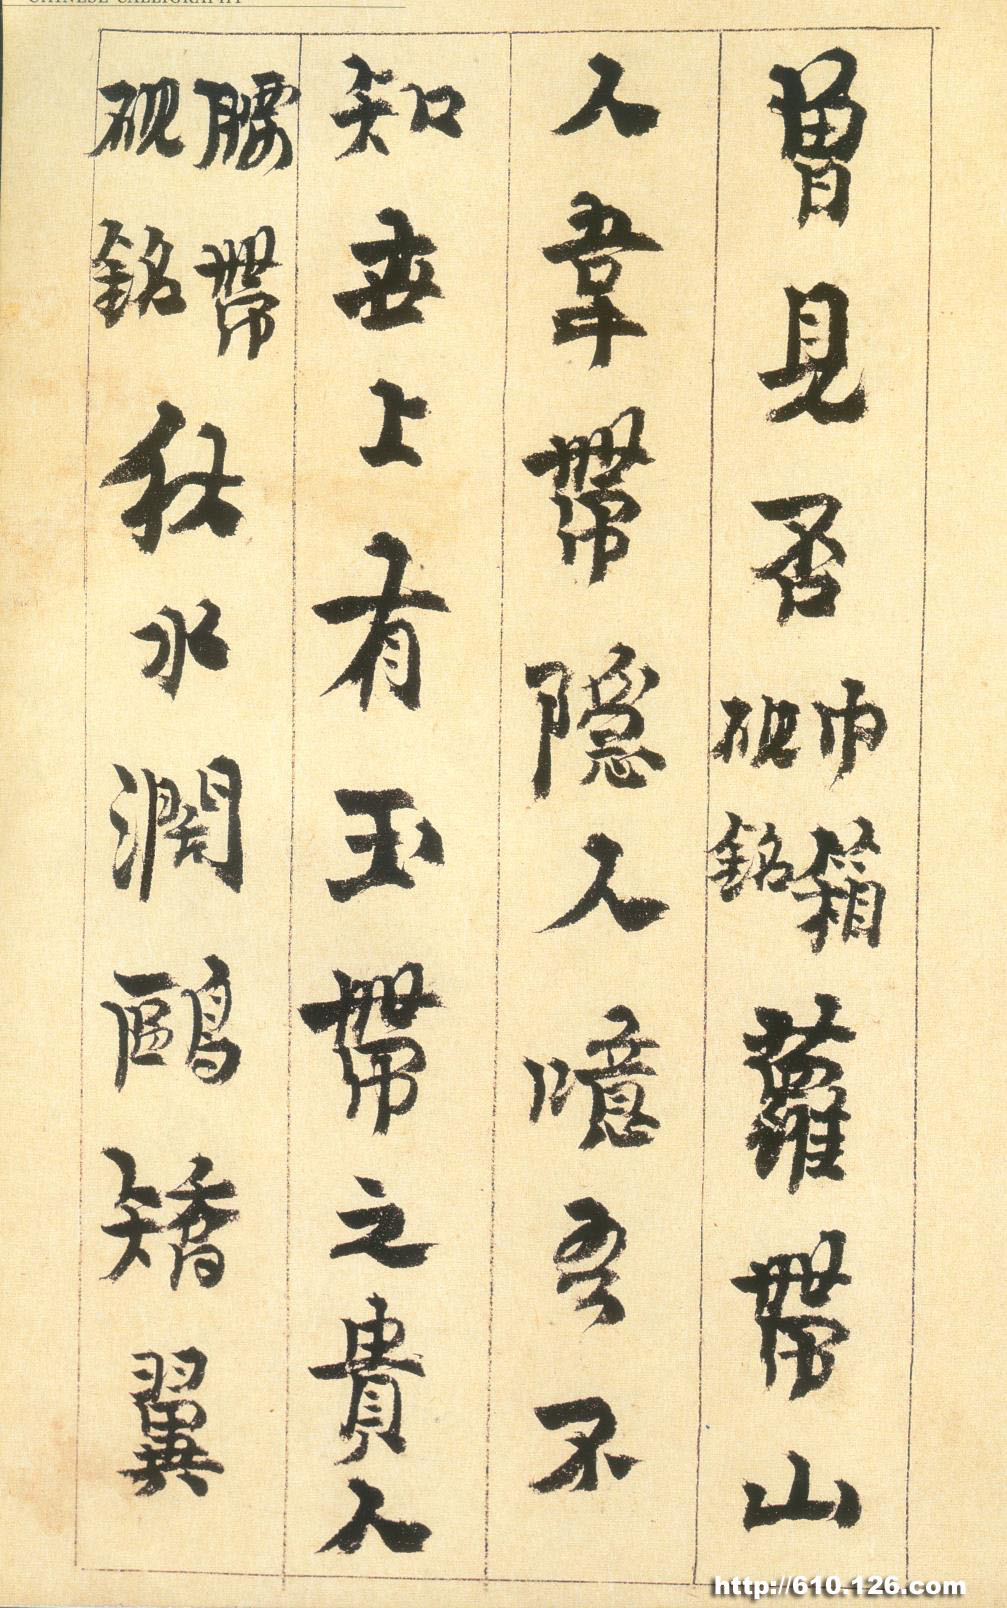 CHINESE CALLIGRAPHY
曾見否巾箱硯銘蘿帶山
人韋帶隱人噫吾不
知世上有玉帶之貴人
腰帶硯銘秋水濶鷗矯翼
http://610-126.com